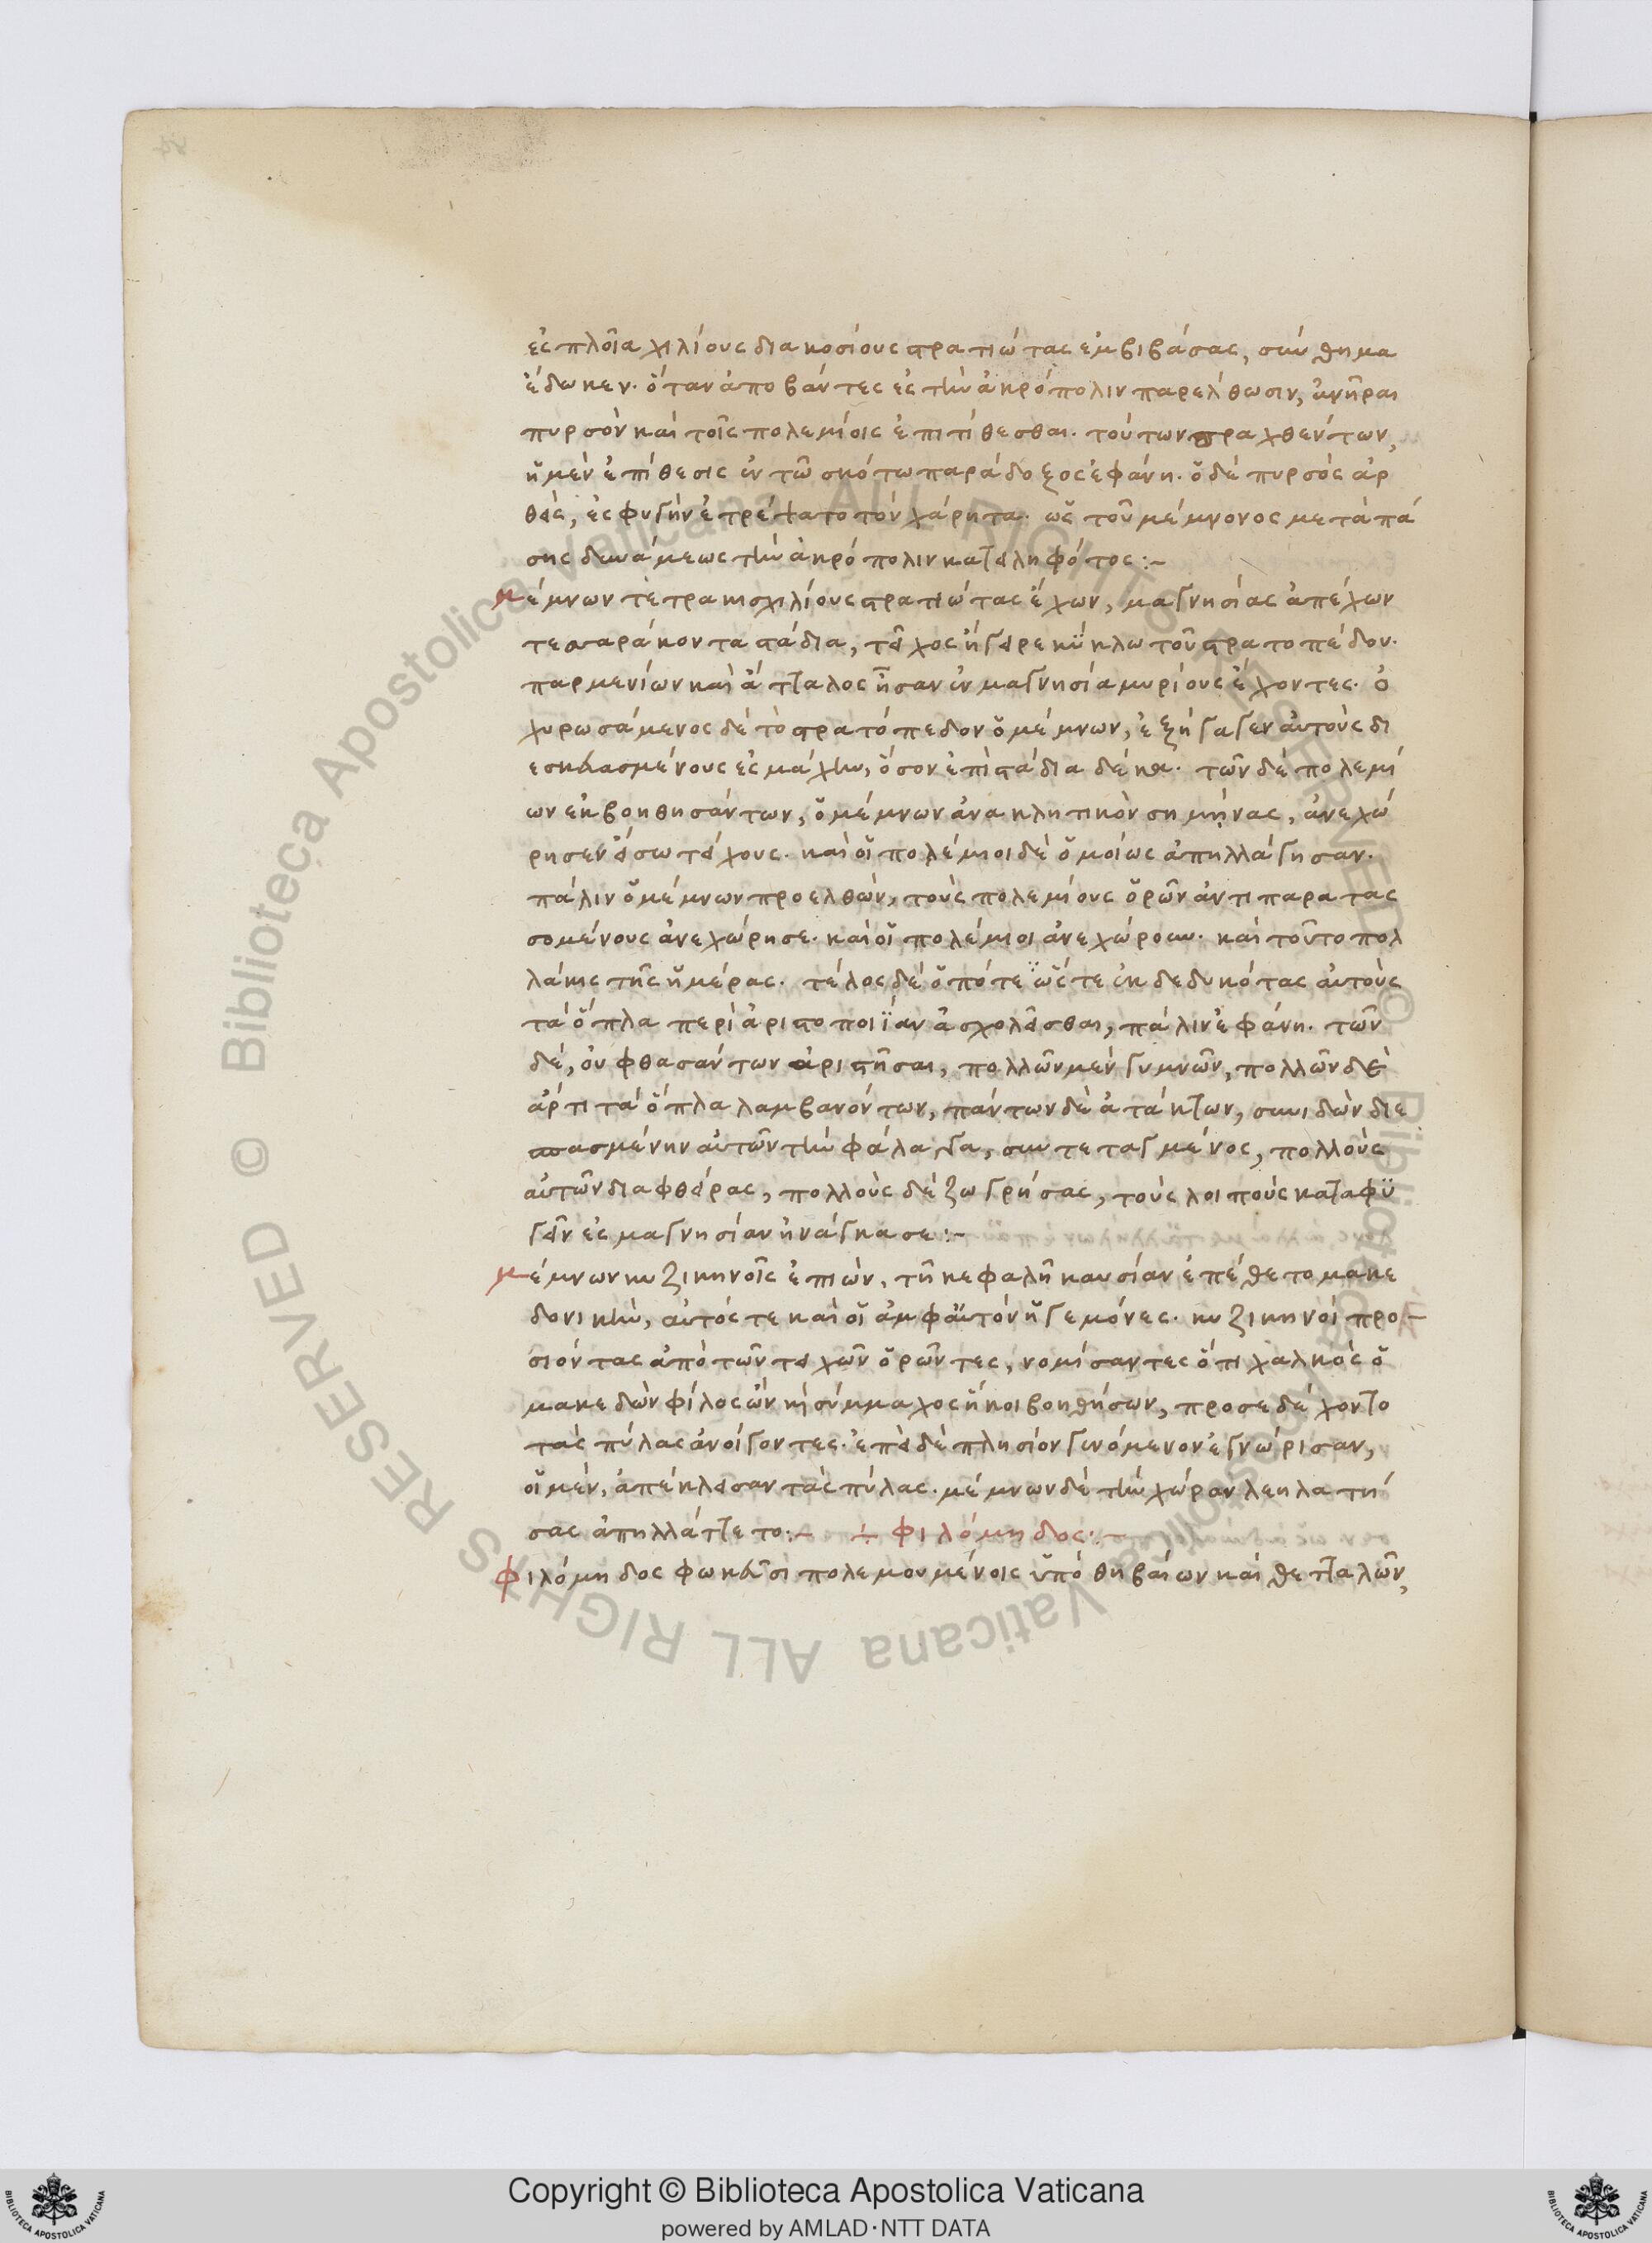 ἐς πλοῖα χιλίους διακοσίους στρατιώτας ἐμβιβάσας, σύνθημα
ἔδωκεν. ὅταν ἀποβάντες ἐς τὴν ἀκρόπολιν παρέλθωσιν, ἀνῆραι
πυρσὸν καὶ τοῖς πολεμίοις ἐπιτίθεσθαι. τούτων πραχθέντων,
ἡ μὲν ἐπίθεσις ἐν τῶ σκότω παράδοξος ἐφάνη. ὁ δὲ πυρσὸς ἀρ
θεὶς, ἐς φυγὴν ἐτρέψατο τὸν χάρητα. ὡς τοῦ μέμνονος μετὰ πά
σης δυνάμεως τὴν ἀκρόπολιν κατειληφότος:-
μέμνων τετρακισχιλίους στρατιώτας ἔχων, μαγνησίας ἀπέχων
τεσσαράκοντα στάδια, τεῖχος ἤγειρε κύκλω τοῦ στρατοπέδου.
παρμενίων καὶ ἄτταλος ἦσαν ἐν μαγνησία μυρίους ἔχοντες. ὀ
χυρωσάμενος δὲ τὸ στρατόπεδον ὁ μέμνων, ἐξήγαγεν αὐτοὺς δι
εσκευασμένους ἐς μάχην, ὅσον ἐπὶ στάδια δέκα. τῶν δὲ πολεμί
ων ἐκβοηθησάντων, ὁ μέμνων ἀνακλητικὸν σημήνας, ἀνεχώ
ρησεν εἴσω τείχους. καὶ οἱ πολέμιοι δὲ ὁμοίως ἀπηλλάγησαν.
πάλιν ὁ μέμνων προελθὼν, τοὺς πολεμίους ὁρῶν ἀντιπαρατας
σομένους ἀνεχώρησε. καὶ οἱ πολέμιοι ἀνεχώρουν. καὶ τοῦτο πολ
λάκις τῆς ἡμέρας. τέλος δὲ ὁπότε ὥς τε ἐκδεδυκότας αὐτοὺς
τὰ ὅπλα περὶ ἀριστοποιΐαν ἀσχολεῖσθαι, πάλιν ἐφάνη. τῶν
δὲ, οὐ φθασάντων ἀριστῆσαι, πολλῶν μὲν γυμνῶν, πολλῶν δὲ
ἄρτι τὰ ὅπλα λαμβανόντων, πάντων δὲ ἀτάκτων, συνιδὼν διε
σπασμένην αὐτῶν τὴν φάλαγγα, συντεταγμένος, πολλοὺς
αὐτῶν διαφθείρας, πολλοὺς δὲ ζωγρήσας, τοὺς λοιποὺς καταφυ
γεῖν ἐς μαγνησίαν ἠνάγκασε:-
μέμνων κυζικηνοῖς ἐπιὼν, τῆ κεφαλῆ καυσίαν ἐπέθετο μακε
δονικὴν, αὐτός τε καὶ οἱ ἀμφ᾽ αὐτὸν ἡγεμόνες. κυζικηνοὶ προ-
σιόντας ἀπὸ τῶν τειχῶν ὁρῶντες, νομίσαντες ὅτι χαλκὸς ὁ
μακεδὼν φίλος ὢν κἠ σύμμαχος ἥκοι βοηθήσων, προσεδέχοντο
τὰς πύλας ἀνοίγοντες. ἐπεὶ δὲ πλησίον γενόμενον ἐγνώρισαν,
οἱ μὲν, ἀπέκλεισαν τὰς πύλας. μέμνων δὲ τὴν χώραν λεηλατή
σας ἀπηλλάττετο:- ÷ φιλόμηδος:-
φιλόμηδος φωκεῦσι πολεμουμένοις ὑπὸ θηβαίων καὶ θετταλῶν,
Copyright © Biblioteca Apostolica Vaticana
powered by AMLAD·NTT DATA